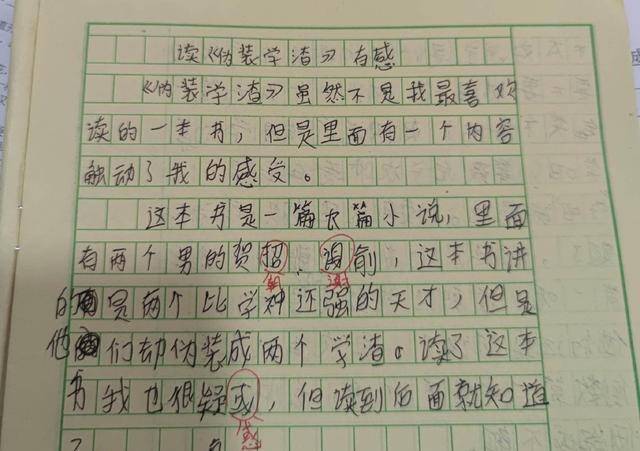 读《伪装学渣》有感
《伪装学渣》虽然不是我最喜欢
读的一本书，但是里面有一个内容
触动了我的感受。
这本书是一篇长篇小说，里面
有两个男的贺招、谒俞，这本书讲
朝 谢
的是两个比学神还强的天才，但是
他们却伪装成两个学渣。读了这本
书我也狠疑或，但读到后面就知道
惑